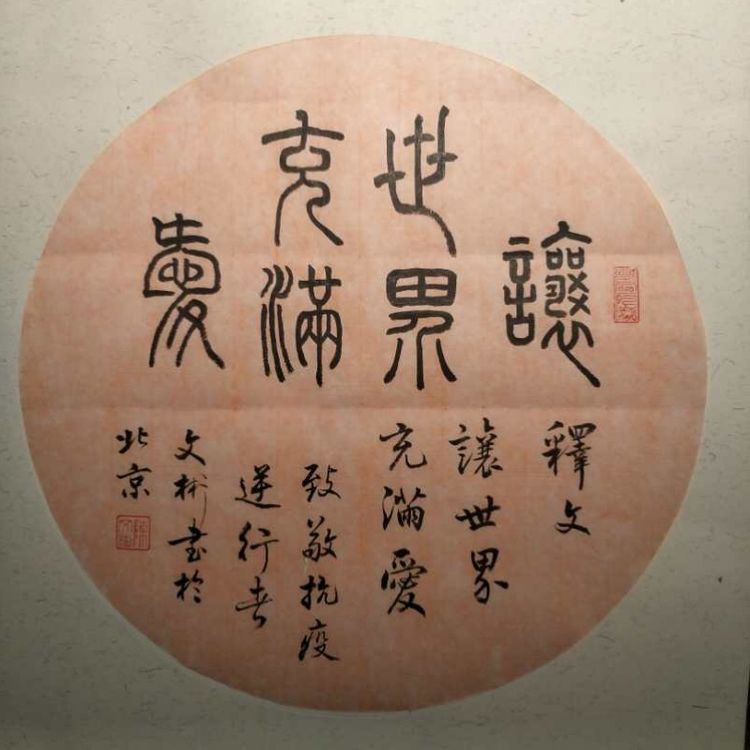 讓
世界
充滿
愛
釋文
讓世界
充滿愛
致敬抗疫
逆行者
文彬書於
北京